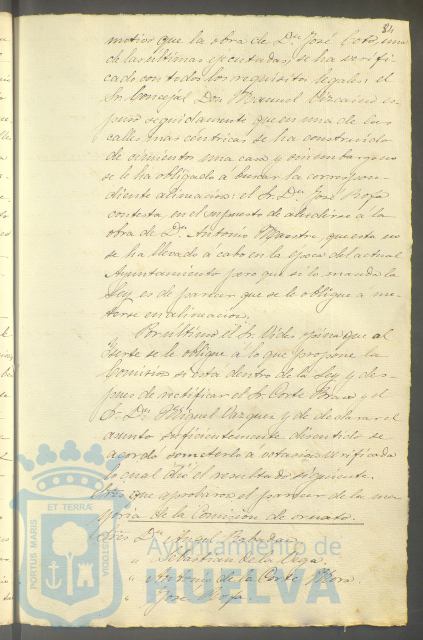 84
motivo que la obra de Dn José Coto, una
de las ultimas ejecutadas, se ha verifi-
cado con todos los requisitos legales: el
Sr. Concejal Don Manuel Vizcaino es-
puso seguidamente que en una de las
calles mas céntricas se ha construido
de cimientos una casa y sin embargo no
se le ha obligado a buscar la correspon-
diente alineacion: el Sr. Dn José Rofa
contesta, en el supuesto de aludirse á la
obra de Dn Antonio Maestre, que esta no
se ha llevado á cabo en la época del actual
Ayuntamiento pero que si lo manda la
Ley, es de parecer que se le obligue a me-
terse en alineacion.
Por ultimo el Sr. Vides opina que al
Verte se le obligue á lo que propone la
Comision si está dentro de la Ley y des-
pues de rectificar el Sr. Corte Bravo y el
Sr. Dn Miguel Vazquez y de declarar el
asunto suficientemente discutido se
acordó someterlo a votacion verificada
lo cual dió el resultado siguiente.
Sres que aprobaron el parecer de la ma-
yoria de la Comision de ornato.
Sres Dn Angel Rabadan
" Sebastian de la Vega.
" Antonio de la Corte
" José Rofa
PORTUS MARIS ET TERRAE CUSTODIA
Ayuntamiento de
HUELVA